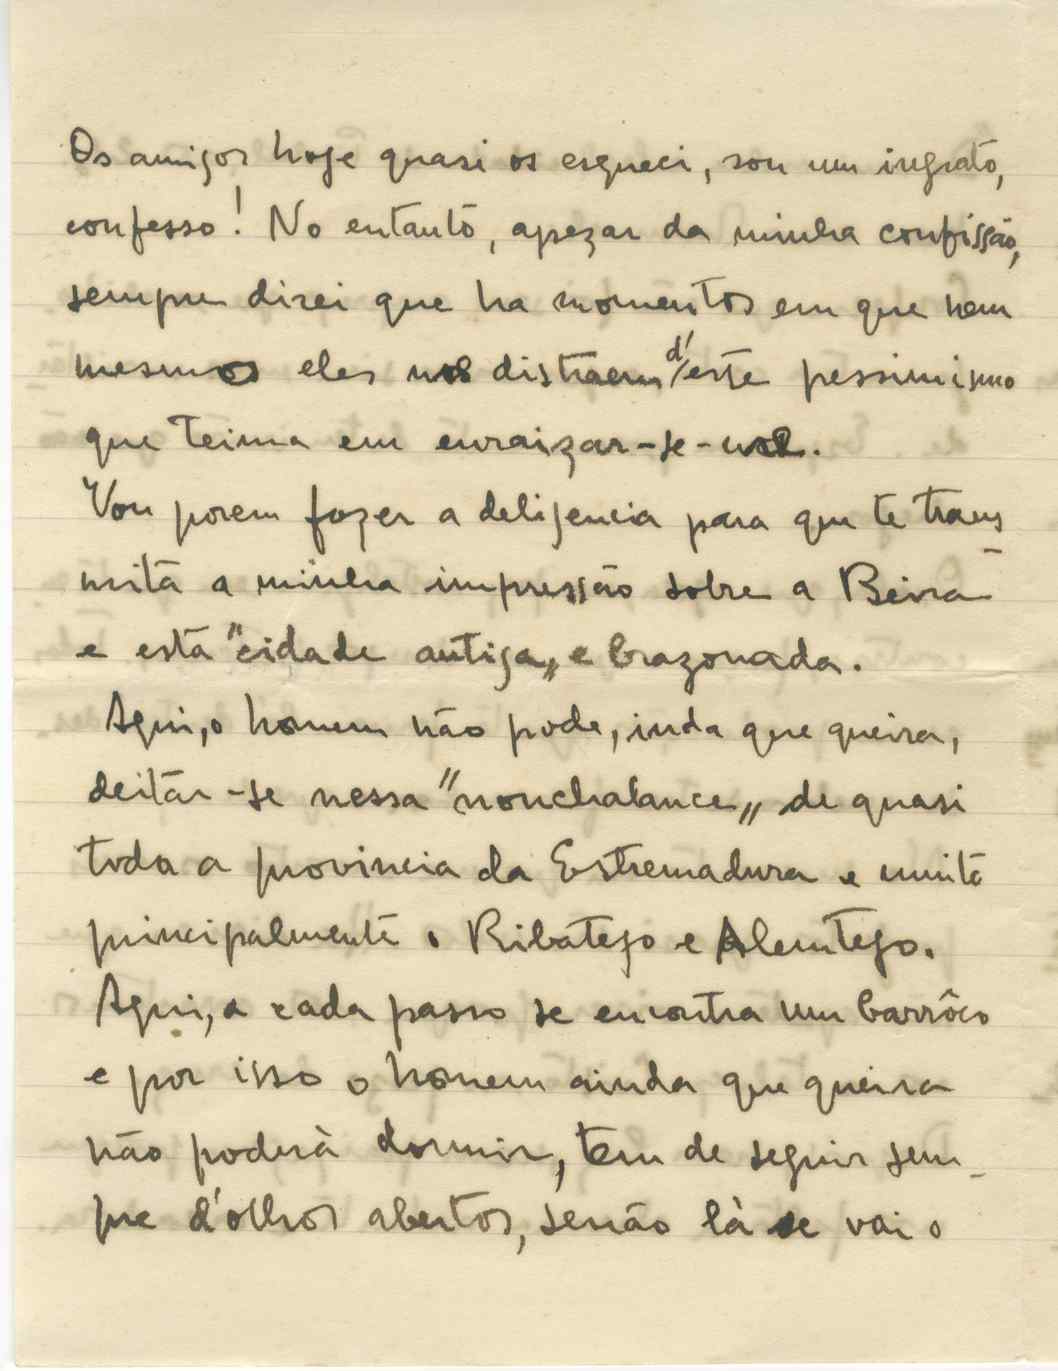 Os amigos hoje quasi os esqueci, sou um ingrato,
confesso! No entanto, apezar da minha confissão,
sempre direi que ha momentos em que nem
mesmo eles nos distraem d'este pessimismo
que teima em enraizar-se-nos.
Vou porem fazer a deligencia para que te trans-
mita a minha impressão sobre a Beira
e esta "cidade antiga„ e brazonada.
Aqui, o homem não pode, inda que queira,
deitar-se nessa "nonchalance„ de quasi
toda a provincia da Estremadura e muito
principalmente o Ribatejo e Alemtejo.
Aqui, a cada passo se encontra um barrôco
e por isso o homem ainda que queira
não poderà dormir, tem de seguir sem-
pre d'olhos abertos, senão là se vai o